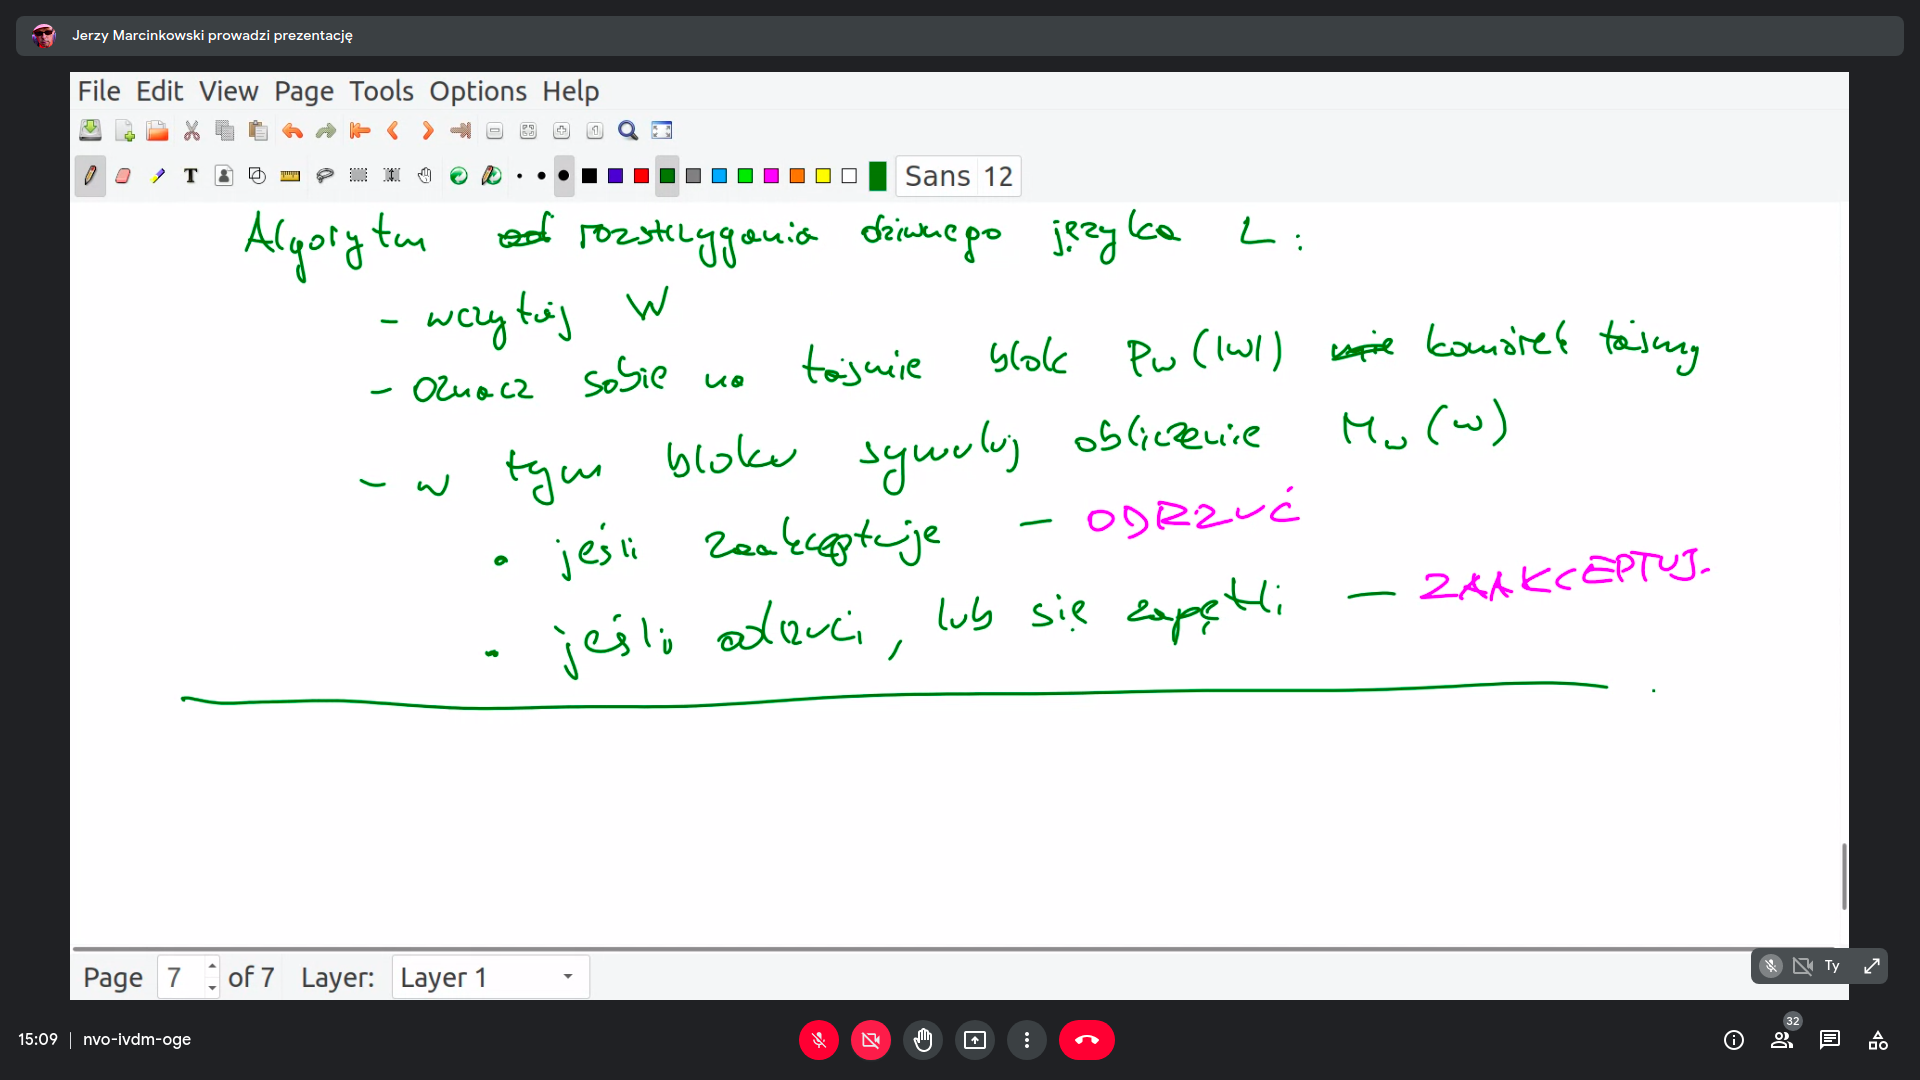 Jerzy Marcinkowski prowadzi prezentację
File Edit View Page Tools Options Help
T Sans 12
Algorytm rozstrzygania dziwnego języka L:
- wczytaj W
- oznacz sobie na taśmie blok Pw(|w|) komórek taśmy
- w tym bloku symuluj obliczenie Mw(w)
• jeśli zaakceptuje — ODRZUĆ
• jeśli odrzuci, lub się zapętli — ZAAKCEPTUJ.
Page 7 of 7 Layer: Layer 1
Ty
15:09 | nvo-ivdm-oge
32